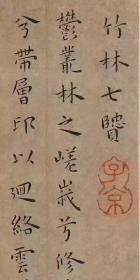 竹林七贒
子京
鬱叢林之嵯峩兮修
兮帶層邱以迴絡雲